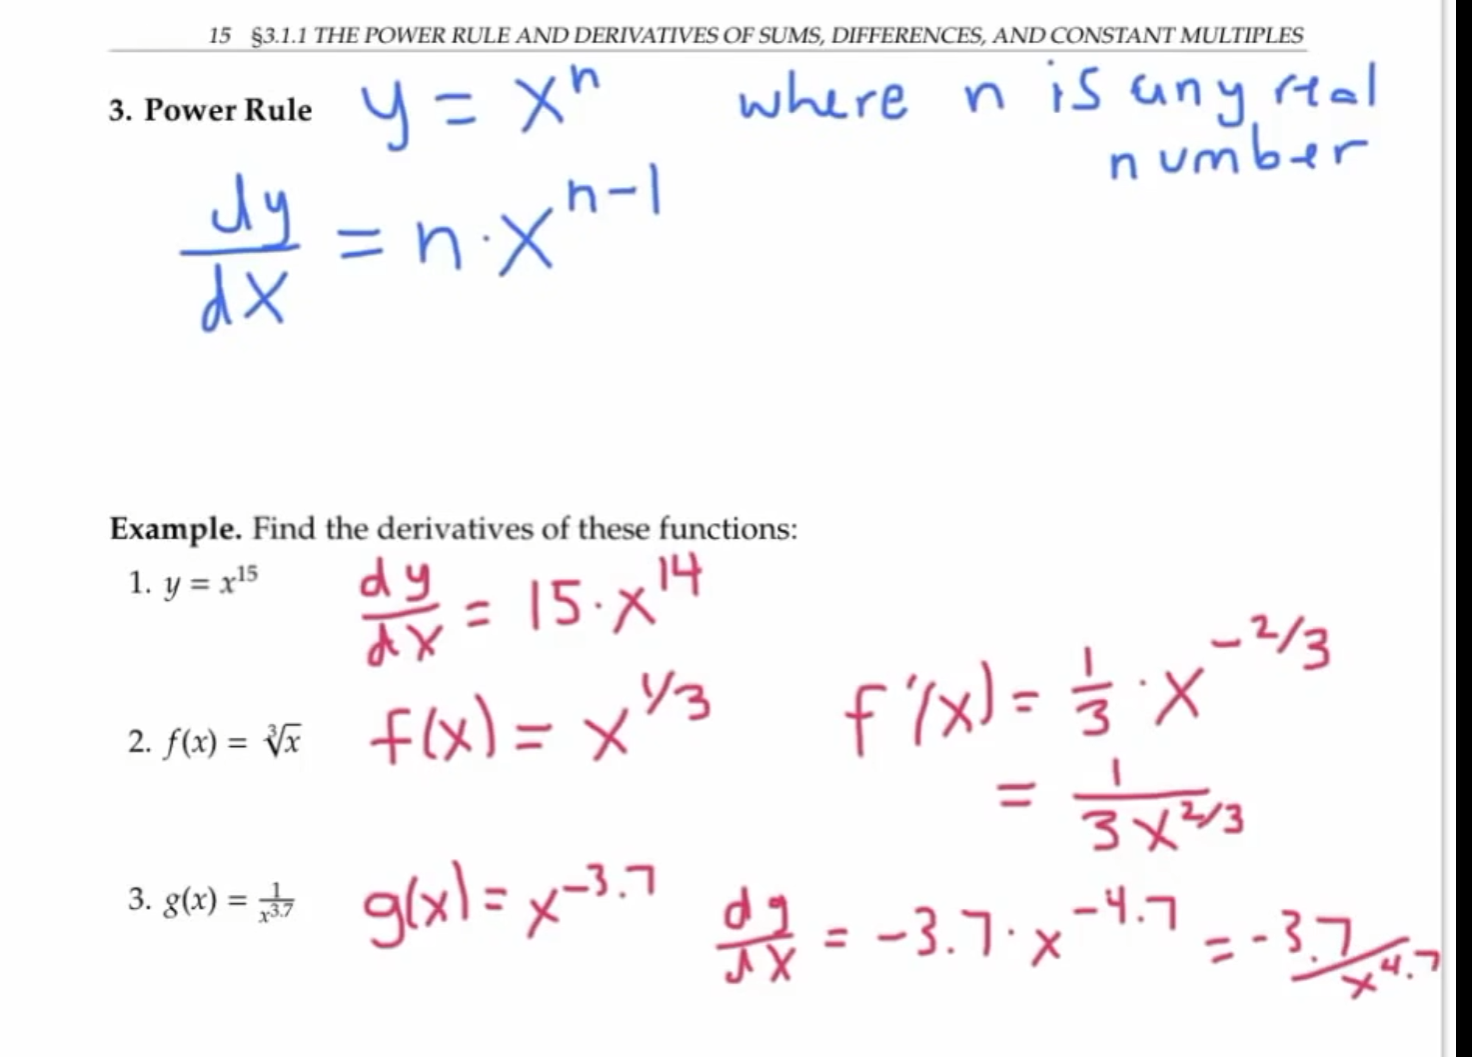 15 §3.1.1 THE POWER RULE AND DERIVATIVES OF SUMS, DIFFERENCES, AND CONSTANT MULTIPLES
3. Power Rule y = xⁿ where n is any real
number
dy/dx = n·xⁿ⁻¹
Example. Find the derivatives of these functions:
1. y = x¹⁵ dy/dx = 15·x¹⁴
2. f(x) = ∛x f(x) = x^(1/3) f'(x) = 1/3 · x^(-2/3)
= 1/(3x^(2/3))
3. g(x) = 1/x^3.7 g(x) = x^(-3.7) dg/dx = -3.7·x^(-4.7) = -3.7/x^4.7